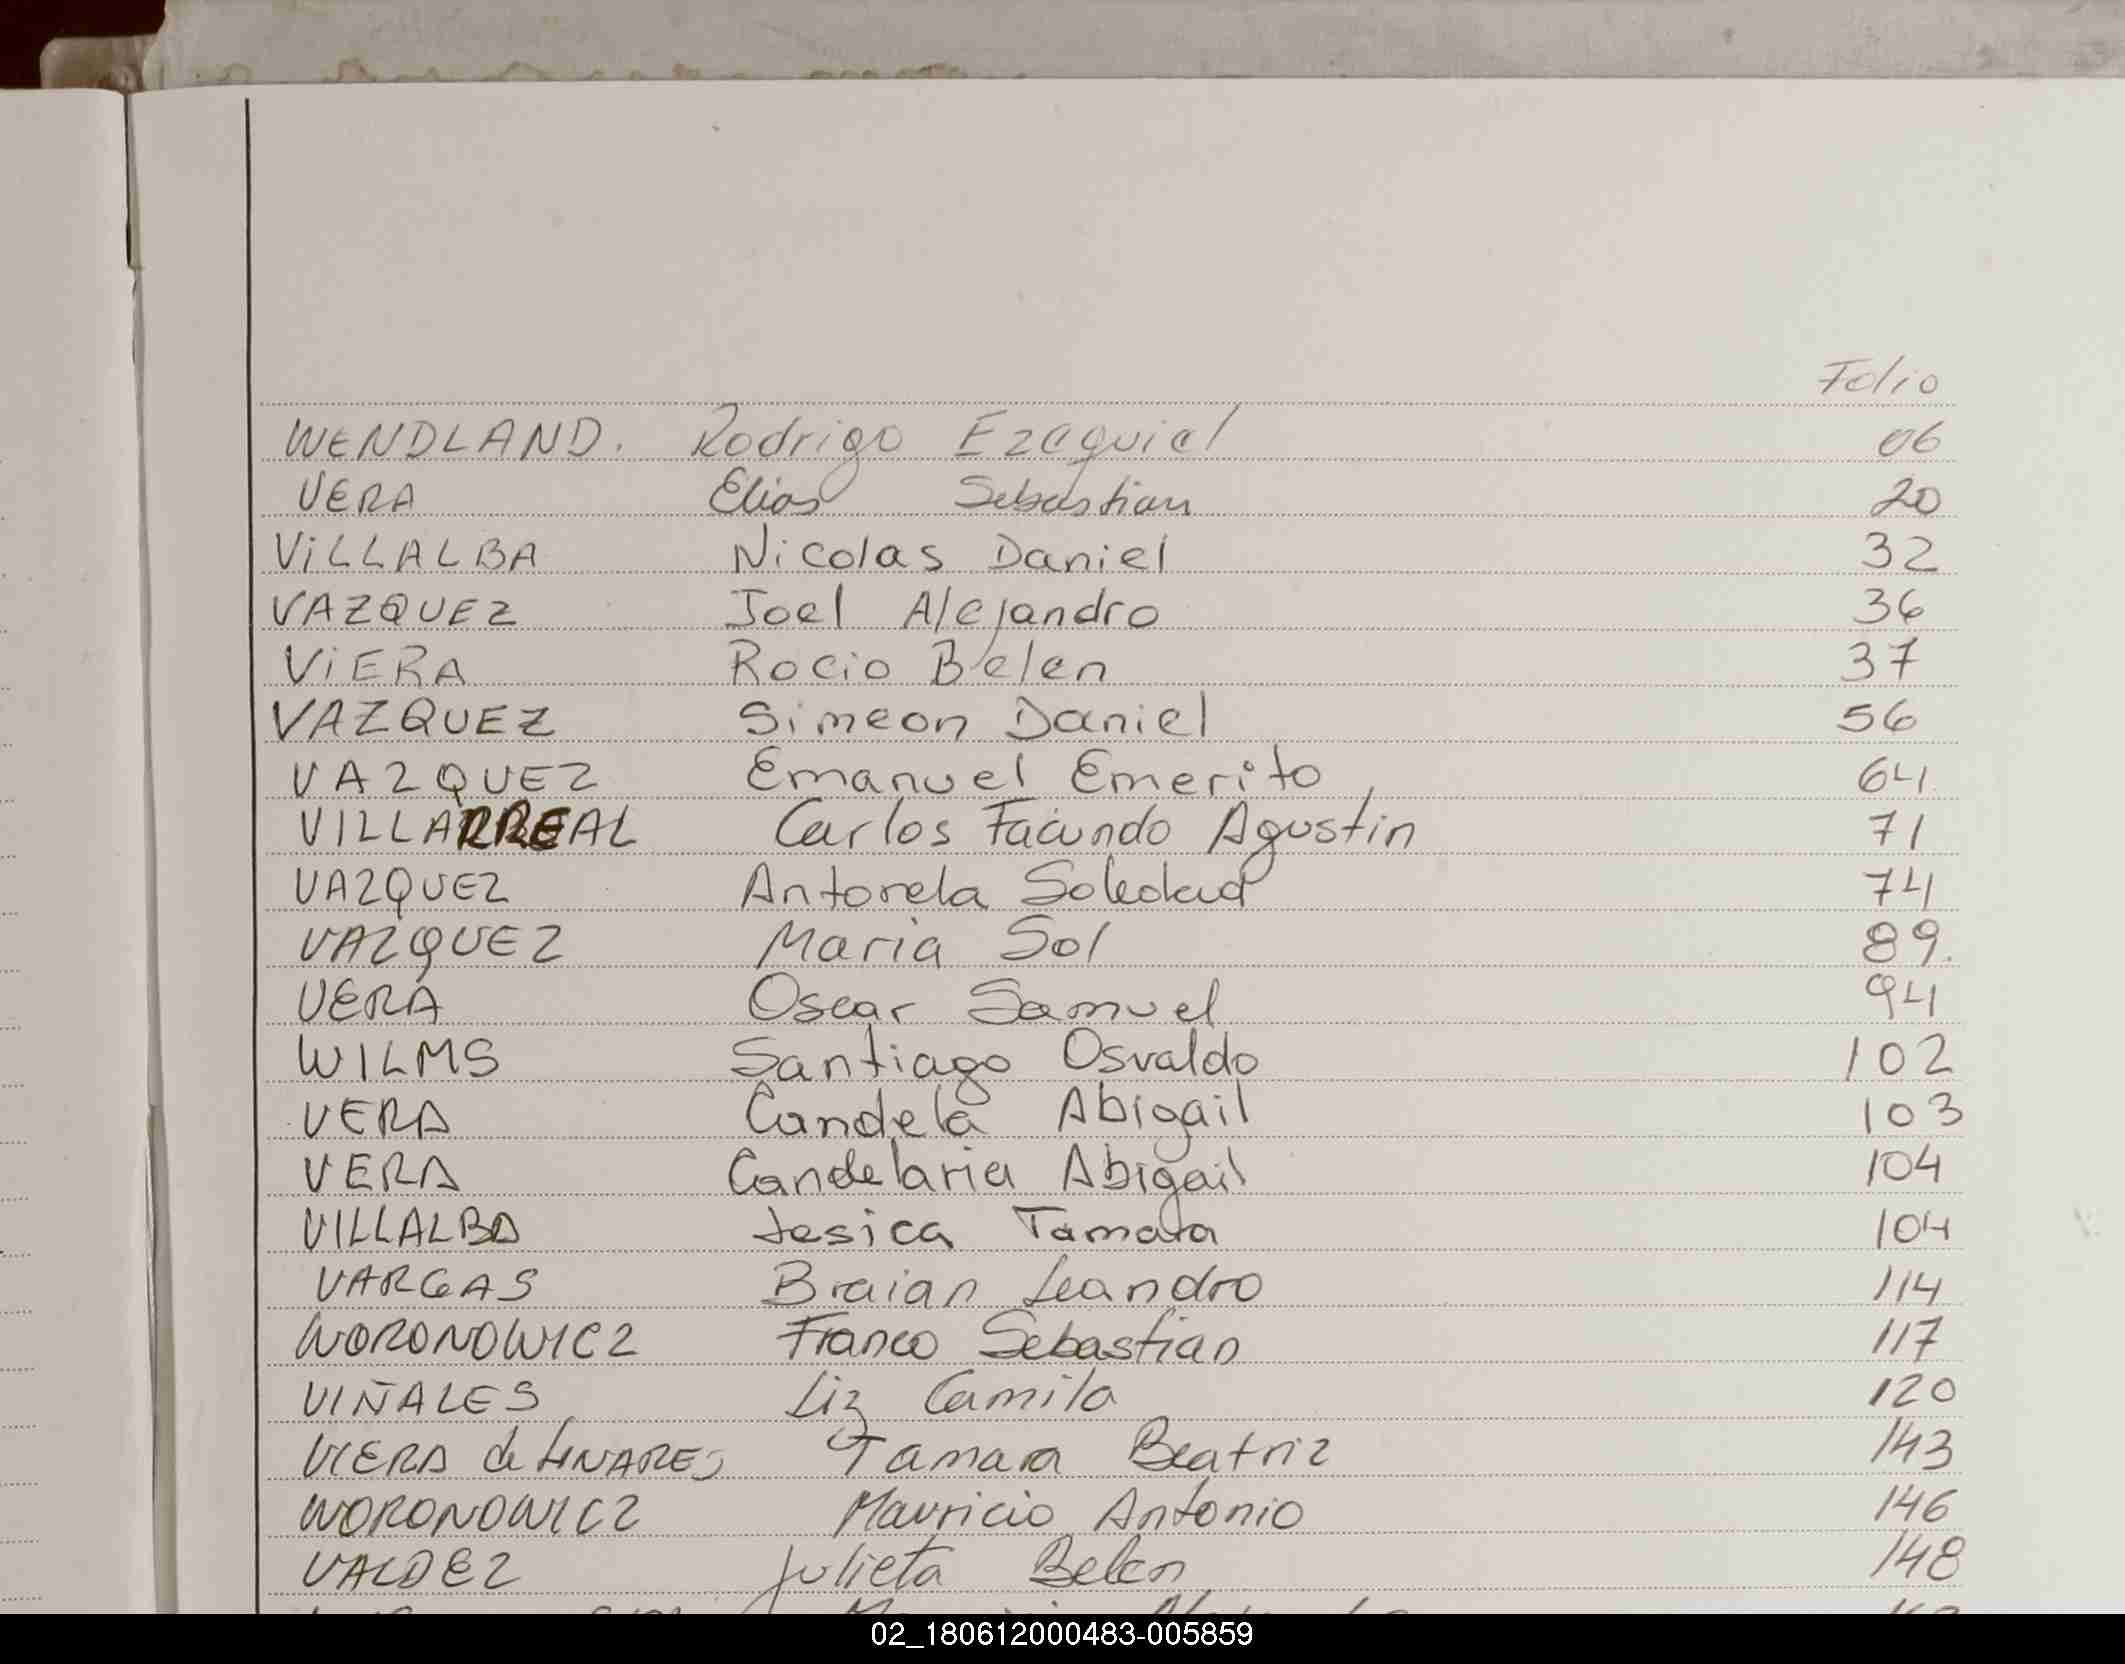 Folio
WENDLAND. Rodrigo Ezequiel 06
VERA Elias Sebastian 20
ViLLALBA Nicolas Daniel 32
VAZQUEZ Joel Alejandro 36
ViERA Rocio Belen 37
VAZQUEZ Simeon Daniel 56
VAZQUEZ Emanuel Emerito 64
VILLARREAL Carlos Facundo Agustín 71
VAZQUEZ Antonela Soledad 74
VAZQUEZ Maria Sol 89.
VERA Oscar Samuel 94
WILMS Santiago Osvaldo 102
VERA Candela Abigail 103
VERA Candelaria Abigail 104
VILLALBA Jesica Tamara 104
VARGAS Braian Leandro 114
WORONOWICZ Franco Sebastian 117
VIÑALES Liz Camila 120
VIERA de LINARES Tamara Beatriz 143
WORONOWICZ Mauricio Antonio 146
VALDEZ Julieta Belen 148
02_180612000483-005859